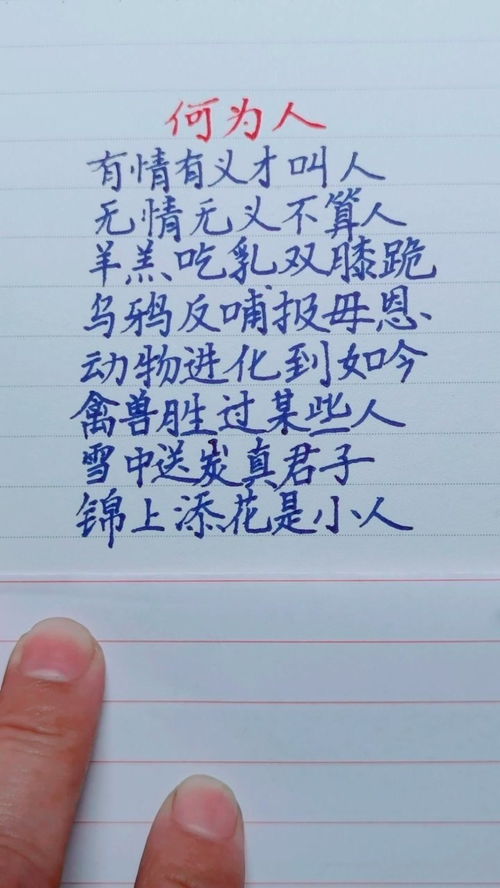 何为人
有情有义才叫人
无情无义不算人
羊羔吃乳双膝跪
乌鸦反哺报母恩
动物进化到如今
禽兽胜过某些人
雪中送炭真君子
锦上添花是小人